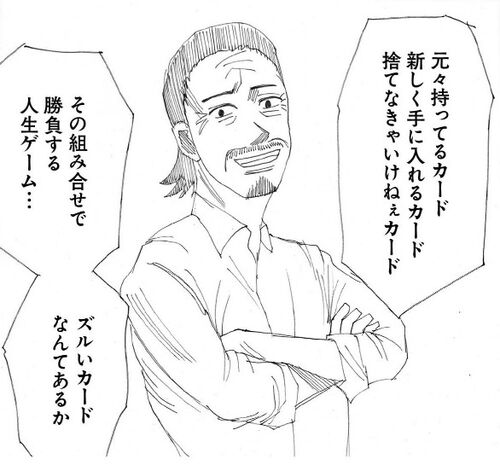 元々持ってるカード
新しく手に入れるカード
捨てなきゃいけねぇカード
その組み合せで
勝負する
人生ゲーム…
ズルいカード
なんてあるか